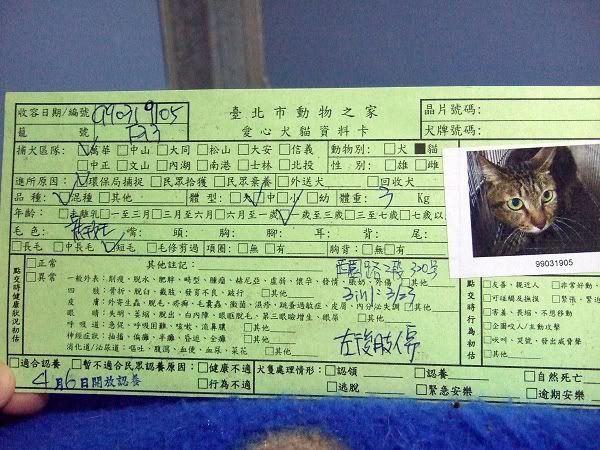 收容日期/編號 99031905 臺北市動物之家 晶片號碼:
籠 號 愛心犬貓資料卡 犬牌號碼:
捕犬區隊: ☑萬華 □中山 □大同 □松山 □大安 □信義 動物別: □犬 ■貓
□中正 □文山 □內湖 □南港 □士林 □北投 性 別: □雄 □雌
進所原因: ☑環保局捕捉 □民眾拾獲 □民眾棄養 □外送犬 □回收犬
品種: ☑混種 □其他 體型: □大 ☑中 □小 □幼 體重: 3 Kg
年齡: □未離乳 □一至三月 □三月至六月 □六月至一歲 ☑一歲至三歲 □三至七歲 □七歲以
毛色: 嘴: 頭: 耳: 背: 尾:
□長毛 □中長毛 ☑短毛 □毛修剪過 項圈: □無 □有 胸背: □無 □有
99031905
點交時健康狀況初估
□正常
□異常
其他註記:
2段300號
一般外表: 削瘦、脫水、肥胖、畸型、腫瘤、赫尼亞、虛弱、懷孕、發情、
四 肢: 骨折、脫臼、截肢、發育不良、跛行 □其他
3in1: 3/23
皮 膚: 外寄生蟲、脫毛、疥癬、毛囊蟲、黴菌、濕疹、跳蚤過敏症、皮屑、內伊治失調 □其他
眼 睛: 失明、萎縮、脫出、白內障、眼眶脫毛、第三眼瞼增生、眼屎 □其他
呼吸道: 急促、呼吸困難、咳嗽、流鼻膿 □其他
左後肢傷
神經症狀: 抽搐、偏癱、半癱、昏迷、全癱 □其他
消化道/泌尿道: 嘔吐、腹瀉、血便、血尿、菜花 □其他
點交時行為初估
□友善、親近人 □非常好動、
□可碰觸及撫摸 □緊張、緊迫
□害羞、畏縮、不想移動
□企圖咬人/主動攻擊
□吠叫、哭號、發出威脅聲
□其他
□適合認養 □暫不適合民眾認養原因: □健康不適 犬隻處理情形: □認領 □認養 □自然死亡
4月6日開放認養 □行為不適 □逃脫 □緊急安樂 □逾期安樂